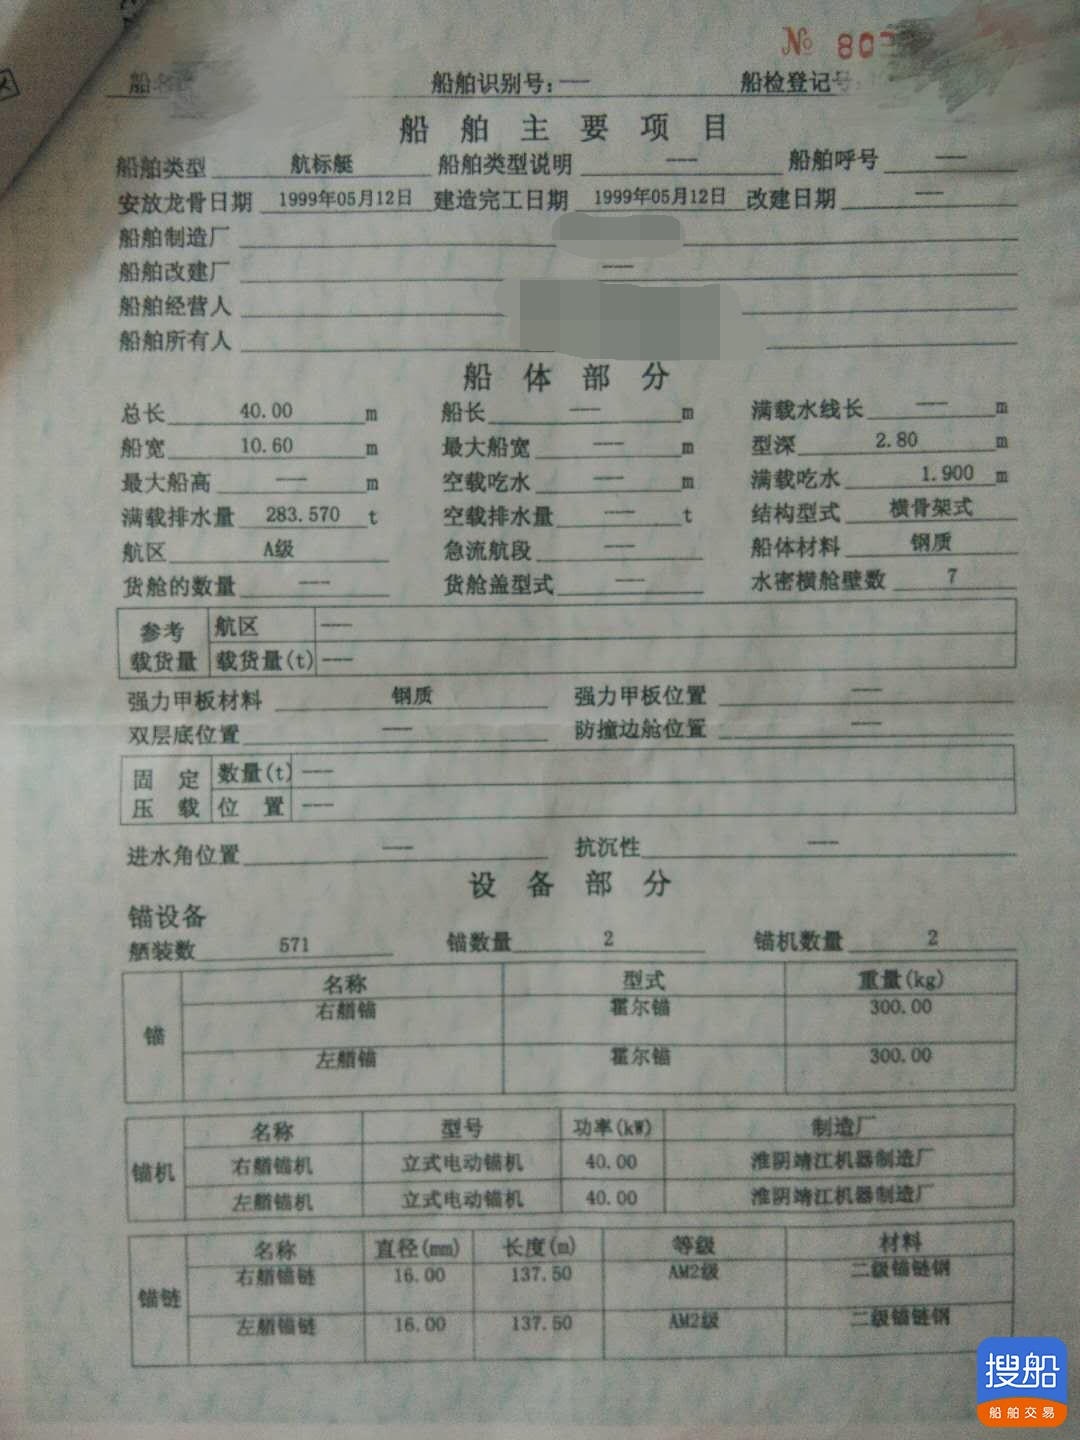 № 803
船名 船舶识别号：--- 船检登记号
船舶主要项目
船舶类型 航标艇 船舶类型说明 --- 船舶呼号 ---
安放龙骨日期 1999年05月12日 建造完工日期 1999年05月12日 改建日期 ---
船舶制造厂
船舶改建厂 ---
船舶经营人
船舶所有人
船体部分
总长 40.00 m 船长 --- m 满载水线长 --- m
船宽 10.60 m 最大船宽 --- m 型深 2.80 m
最大船高 --- m 空载吃水 --- m 满载吃水 1.900 m
满载排水量 283.570 t 空载排水量 --- t 结构型式 横骨架式
航区 A级 急流航段 --- 船体材料 钢质
货舱的数量 --- 货舱盖型式 --- 水密横舱壁数 7
参考载货量 航区 ---
载货量(t) ---
强力甲板材料 钢质 强力甲板位置 ---
双层底位置 --- 防撞边舱位置 ---
固定压载 数量(t) ---
位置 ---
进水角位置 --- 抗沉性 ---
设备部分
锚设备
舾装数 571 锚数量 2 锚机数量 2
锚 名称 型式 重量(kg)
右艏锚 霍尔锚 300.00
左艏锚 霍尔锚 300.00
锚机 名称 型号 功率(kW) 制造厂
右艏锚机 立式电动锚机 40.00 淮阴靖江机器制造厂
左艏锚机 立式电动锚机 40.00 淮阴靖江机器制造厂
锚链 名称 直径(mm) 长度(m) 等级 材料
右艏锚链 16.00 137.50 AM2级 二级锚链钢
左艏锚链 16.00 137.50 AM2级 二级锚链钢
搜船
船舶交易